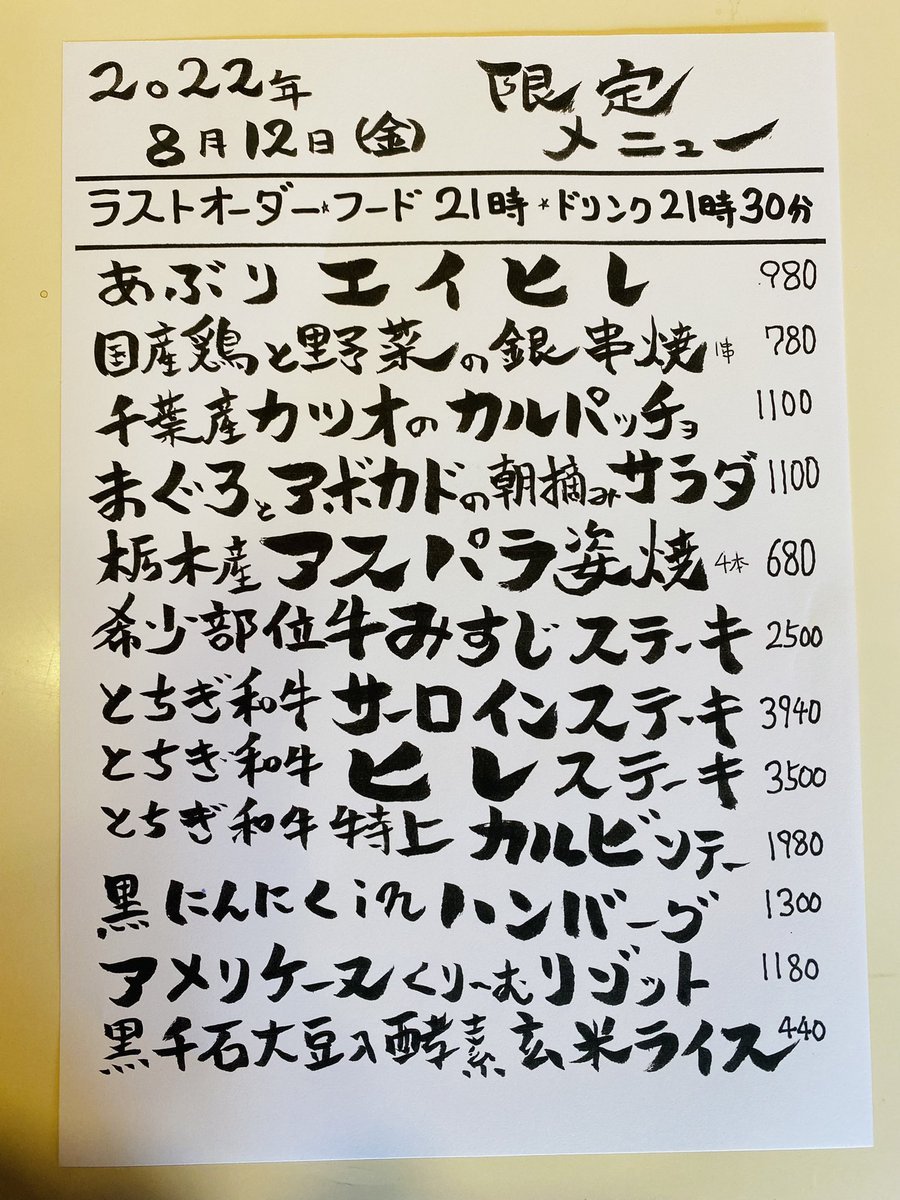 2022年 限定
8月12日(金) メニュー
ラストオーダー★フード 21時★ドリンク21時30分
あぶり エイヒレ 980
国産鶏と野菜の銀串焼 1串 780
千葉産カツオのカルパッチョ 1100
まぐろとアボカドの朝摘みサラダ 1100
栃木産アスパラ姿焼 4本 680
希少部位牛みすじステーキ 2500
とちぎ和牛 サーロインステーキ 3940
とちぎ和牛 ヒレステーキ 3500
とちぎ和牛特上 カルビソテー 1980
黒にんにくinハンバーグ 1300
アメリケーヌくり〜むリゾット 1180
黒千石大豆入酵素玄米ライス 440